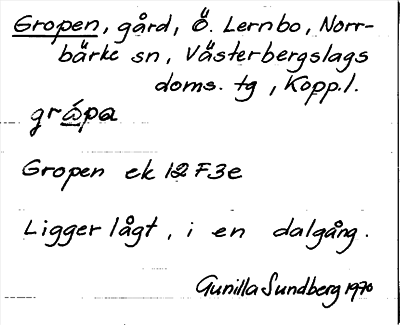 Gropen, gård, Ö. Lernbo, Norr-
bärke sn, Västerbergslags
doms. tg, Kopp.l.
grápa
Gropen ek 12F3e
Ligger lågt, i en dalgång.
Gunilla Sundberg 1970